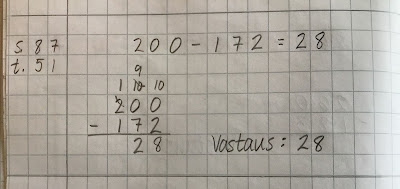 s 87 200 - 172 = 28
t. 51
9
1 10 10
200
- 172
28 Vastaus : 28